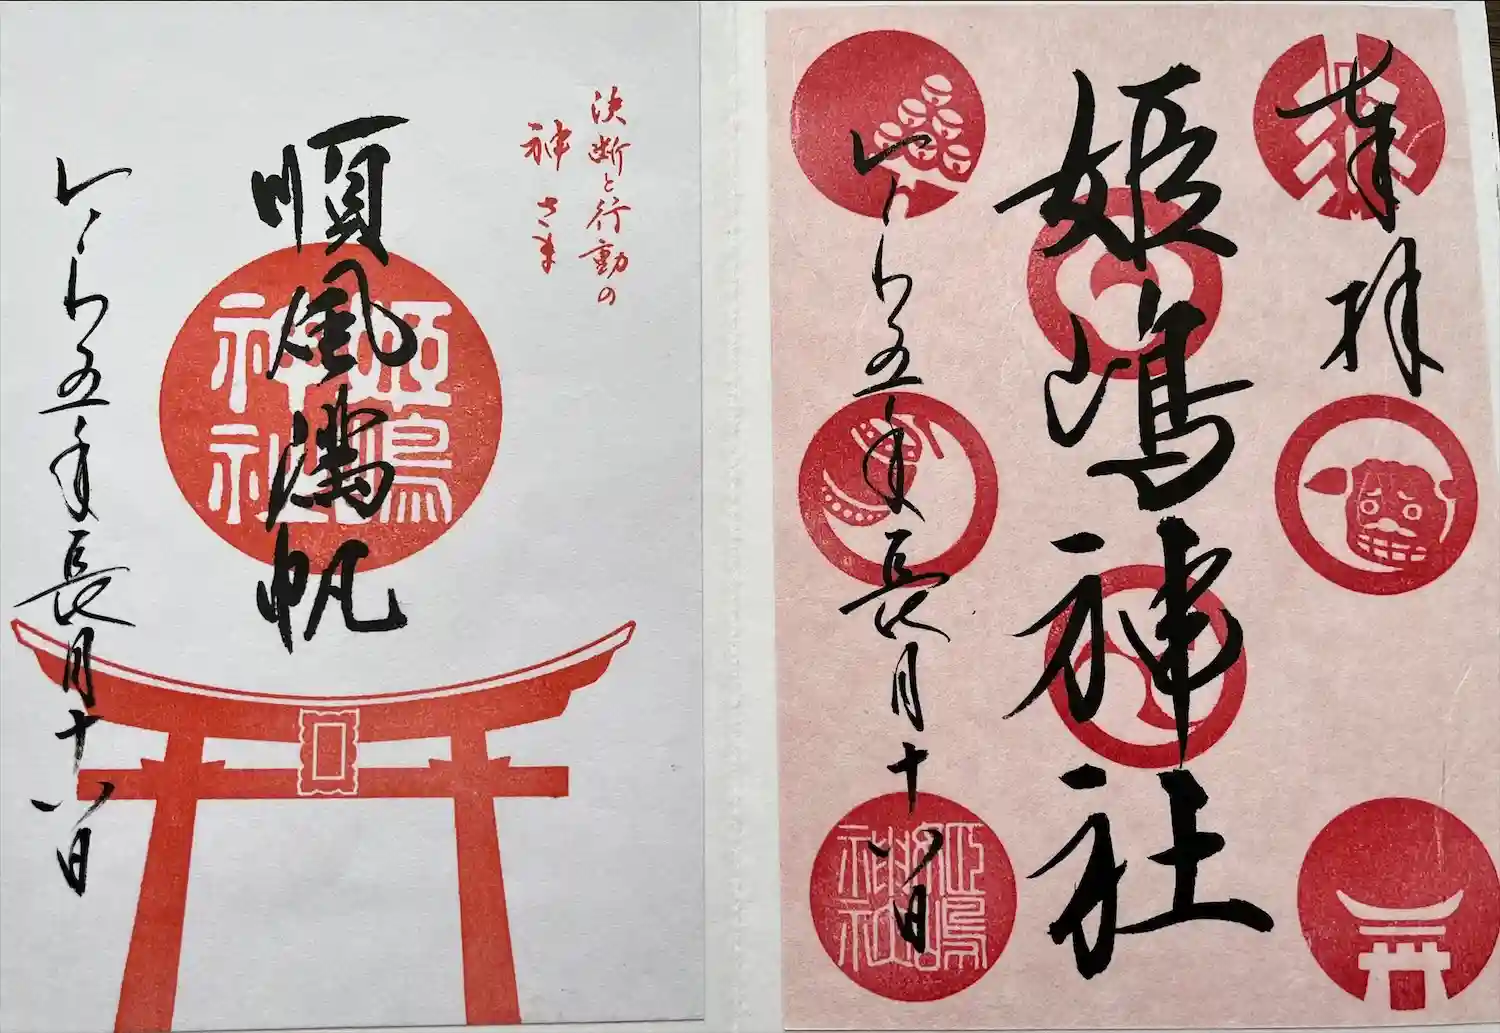 奉拝
姫嶋神社
れいわ五年長月十八日
姫嶋
神社
決断と行動の
神さま
順風満帆
姫嶋
神社
れいわ五年長月十八日